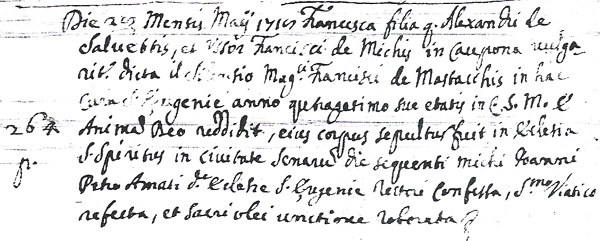 Die 22 Mensis Maij 1717 Francesca filia q. Alexandri de
Salvettis, et Uxor Francisci de Michis in Caupona vulga
rit. dicta il Mag.ci Francisci de Mastacchis in hac
Cura S. Eugenie anno quadragesimo sue etatis in C. S. M. E
264 Animã Deo reddidit, eius corpus sepultus fuit in Ecclesia
p. S. Spiritus in Civitate Senarũ die sequenti michi Joanni
Petro Amati de Eclesie S. Eugenie Rectori Confessa, S.mo Viatico
refecta, et Sacri olei unctione roborata